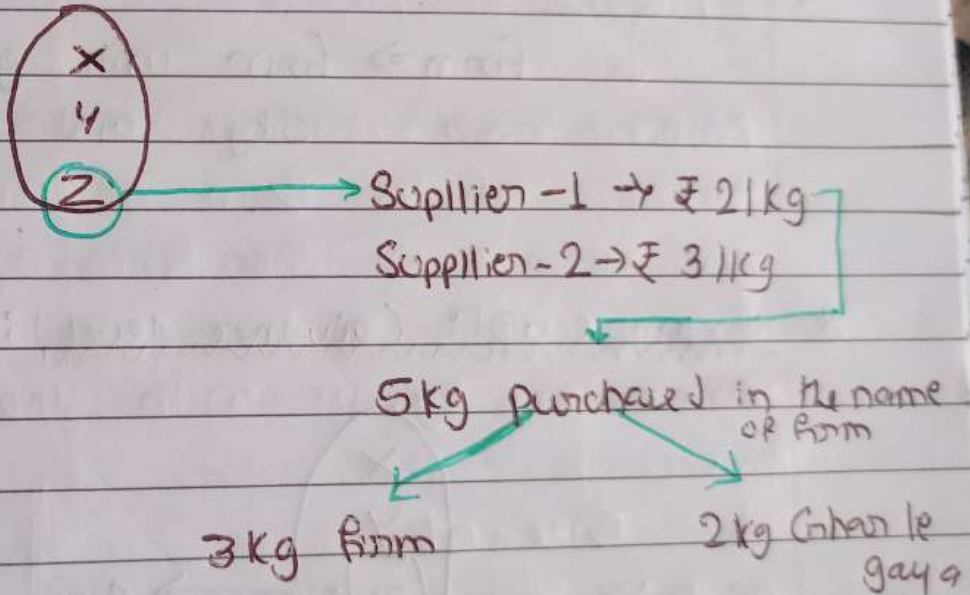 X
y
Z
Supllier-1 → ₹ 2/kg
Suppllier-2 → ₹ 3/kg
5kg purchased in the name
of firm
3kg firm
2kg Ghar le
gaya